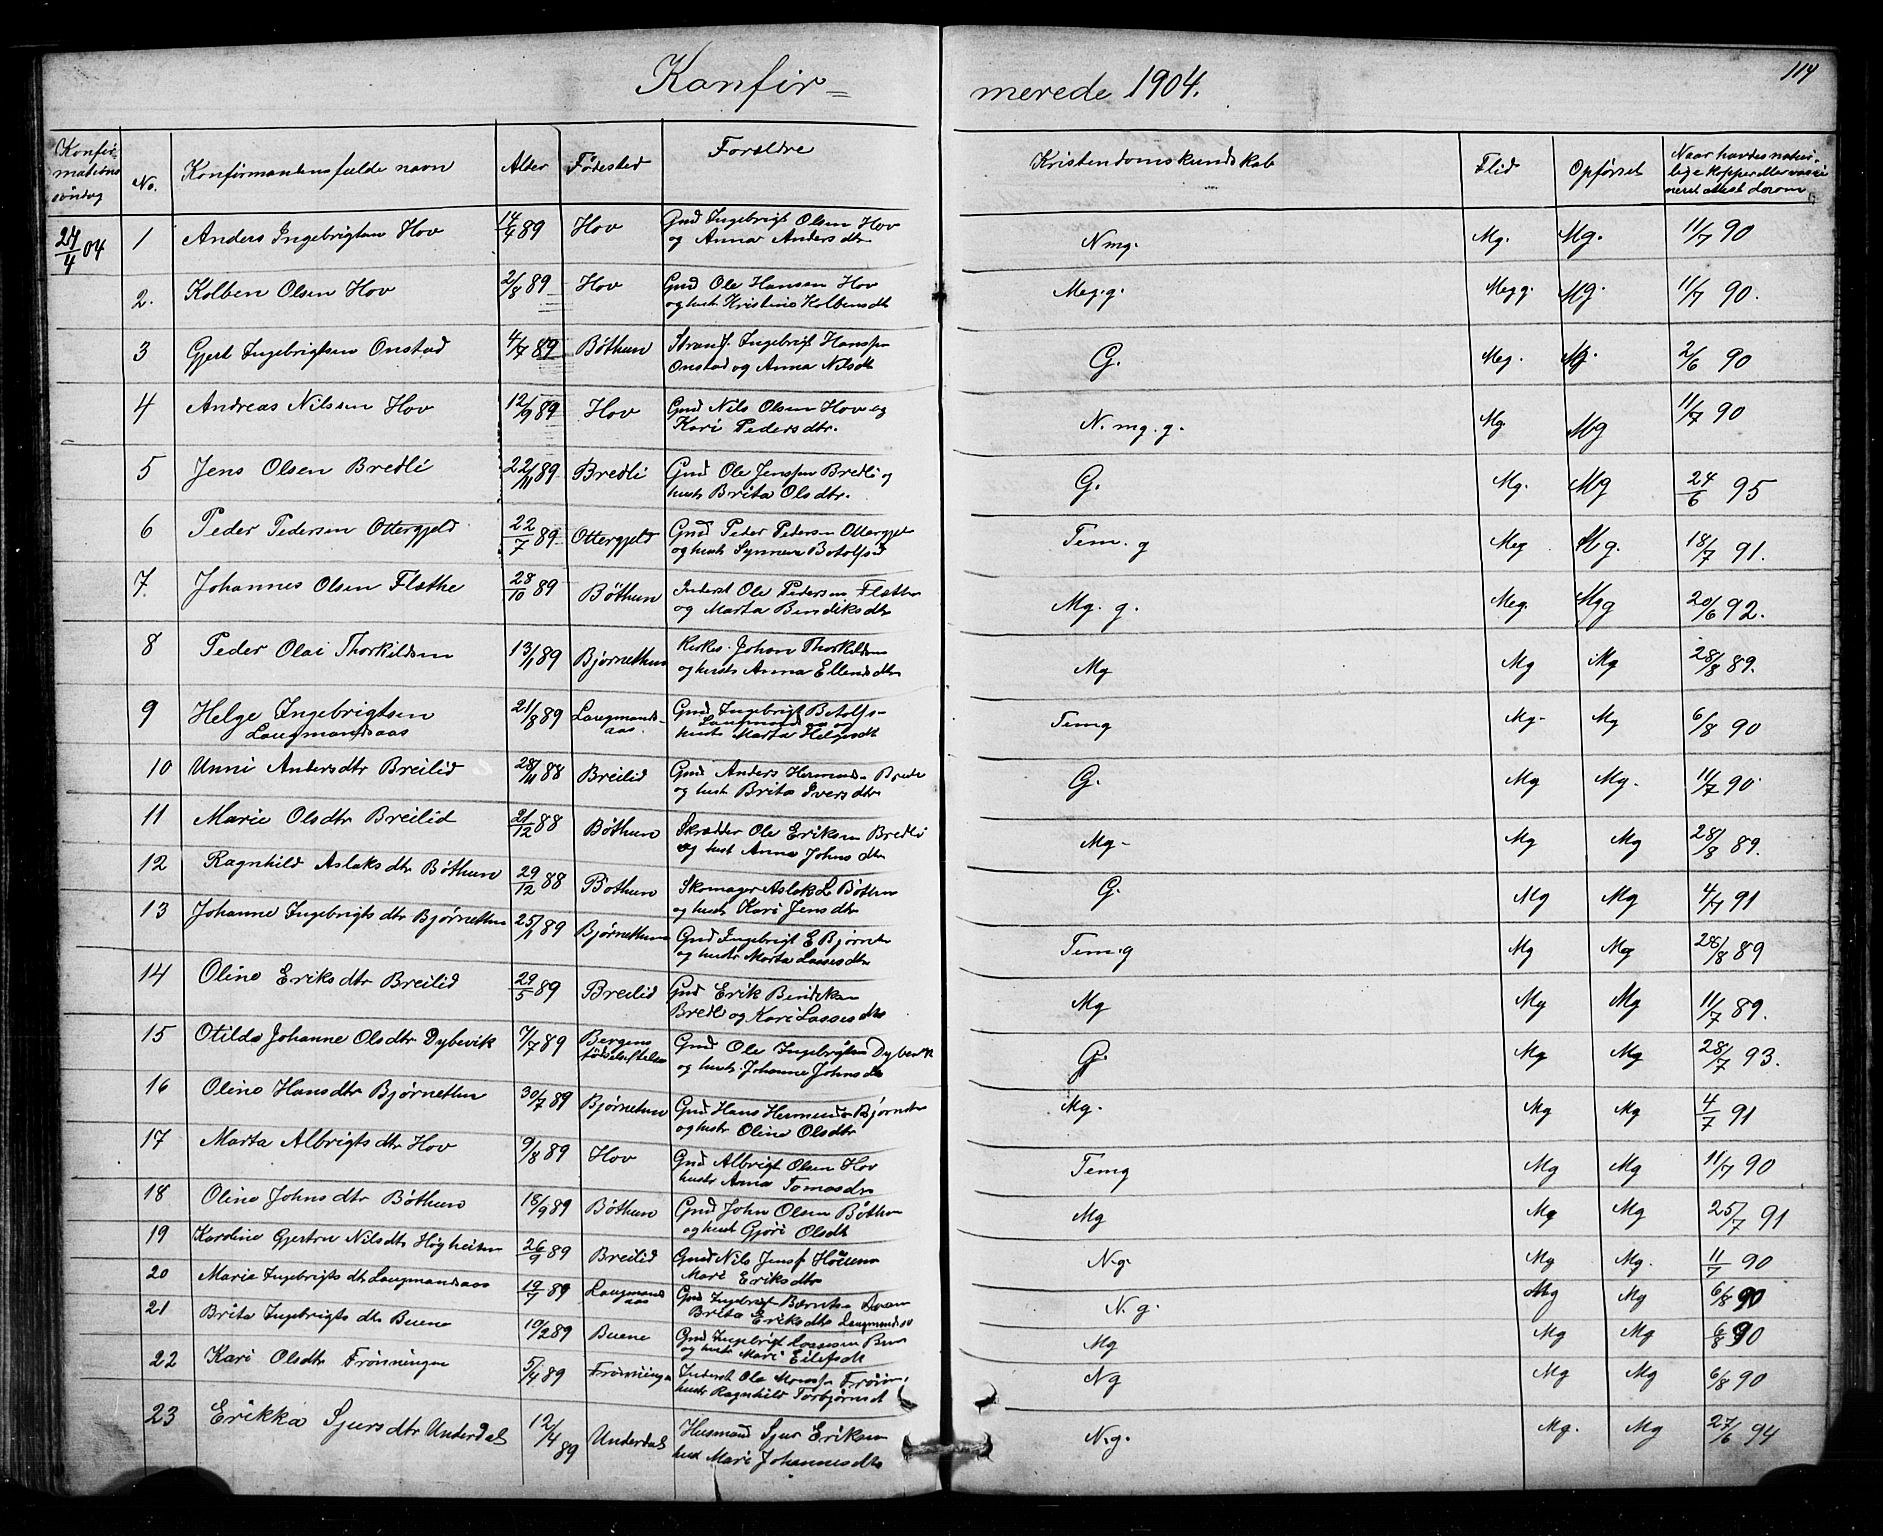 Konfir=
merede 1904.
114
Konfir-
mations
søndag
No.
Konfirmantens fulde navn
Alder
Fødested
Foreldre
Kristendomskundskab
Flid
Opførsel
Naar havdes natur-
lige kopper eller vacci-
neret attest derom
24/4 04 1 Anders Ingebrigtsen Hov 14/4 89 Hov Gmd Ingebrigt Olsen Hov
og Anna Andersdtr Nmg. Mg. Mg. 11/7 90
2. Kolben Olsen Hov 2/8 89 Hov Gmd Ole Hansen Hov
og hust Kristine Kolbensdtr Meg.g. Megg. Mg. 11/7 90.
3 Gjert Ingebrigtsen Onstad 4/7 89 Bøthun Strand. Ingebrigt Hansen
Onstad og Anna Nilsdt G. Meg. Mg. 2/6 90
4 Andreas Nilsen Hov 12/9 89 Hov Gmd Nils Olsen Hov og
Kari Pedersdtr. N.mg.g. Mg Mg 11/7 90
5 Jens Olsen Bredli 22/11 89 Bredli Gmd Ole Jenssen Bredli og
hust Brita Olsdtr. G. Mg. Mg 24/6 95
6 Peder Pedersen Ottergjeld 22/7 89 Ottergjeld Gmd Peder Pedersen Ottergjel
og hust Synneva Botolfsd Tem.g Meg Mg. 18/7 91.
7. Johannes Olsen Flæthe 28/10 89 Bøthun Inderst Ole Pedersen Flæthe
og Marta Bendiksdtr Mg.g. Meg. Mgg 20/6 92.
8 Peder Olai Thorkildsen 13/1 89 Bjørnethun Kirkes. Johan Thorkildsen
og hust Anna Ellensdtr Mg Mg Mg 28/8 89.
9 Helge Ingebrigtsen
Laugmandsaas 21/8 89 Laugmands-
aas. Gmd Ingebrigt Botolfs-
Laugmandsaas og
hust Marta Helgesdt Temg Mg- Mg 6/8 90
10 Unni Andersdtr Breilid 28/11 88 Breilid Gmd Anders Hermunds. Brede
og hust Brita Iversdtr G. Mg Mg. 11/7 90
11 Marie Olsdtr Breilid 21/12 88 Bøthun Skrædder Ole Eriksen Bredli
og hust Anna Johnsdtr Mg- Mg Mg 28/8 89.
12 Ragnhild Aslaksdtr Bøthun 29/12 88 Bøthun Skomager Aslak L Bøthun
og hust Kari Jensdtr G. Mg Mg 4/7 91
13 Johanne Ingebrigtsdtr Bjørnethun 25/1 89 Bjørnethun Gmd Ingebrigt E Bjørnet
og hust Marta Lassesdtr Tem.g Mg Mg 26/8 89
14 Oline Eriksdtr Breilid 29/5 89 Breilid Gmd Erik Bendiksen
Bredli og Kari Lassesdtr Mg Mg Mg 11/7 89.
15 Otilda Johanne Olsdtr Dybevik 7/7 89 Bergens
fødselsstiftelse Gmd Ole Ingebrigtsen Dybevik
og hust Johanne Johnsdtr G Mg Mg 28/7 93.
16 Oline Hansdtr Bjørnethun 30/7 89 Bjørnetun Gmd Hans Hermunds. Bjørnetu
og hust Oline Olsdtr Mg. Mg Mg 4/7 91
17 Marta Albrigtsdtr Hov 9/8 89 Hov Gmd Albrigt Olsen Hov
hust Anna Tomasdtr Temg Mg Mg 11/7 90
18 Oline Johnsdtr Bøthun 18/9 89 Bøthun Gmd John Olsen Bøthun
og hust Gjøri Olsdt Mg Mg Mg 25/7 91
19 Karoline Gjertru Nilsdtr Høgheim 26/9 89 Breilid Gmd Nils Jensf
Mari Eriksdtr N.g. Mg Mg. 11/7 90
20 Maria Ingebrigtsdtr Laugmandsaas 19/7 89 Laugmands
aas Gmd Ingebrigt
Brita Eriksdtr Laugmandsaas N.g. Mg Mg 6/8 90
21 Brita Ingebrigtsdtr Buene 10/2 89 Buene Gmd Ingebrigt Lassesen Bue
og hust Mari Eilefsdt Mg Mg Mg 6/8 90
22 Kari Olsdtr Frønningen 5/4 89 Frønningen Inderst Ole Frønn.
hust Ragnhild Torbjørnsdt Ng Mg Mg 6/8 90
23 Erikka Sjursdtr Underdal 12/4 89 Underdal Husmand Sjur Eriksen
hust Mari Johannesdtr N.g. Mg. Mg 27/6 94